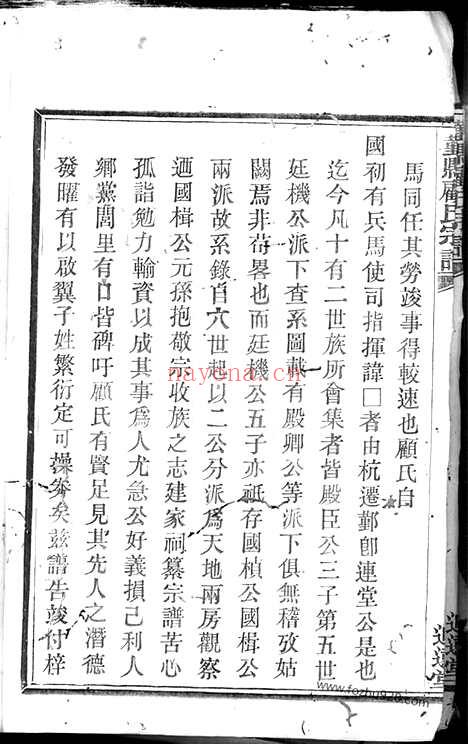 馬同任其勞竣事得較速也顧氏自
國初有兵馬使司指揮諱□者由杭遷鄞卽連堂公是也
迄今凡十有二世族所會集者皆殿臣公三子第五世
廷機公派下查系圖載有殿卿公等派下俱無稽攷姑
闕焉非苟畧也而廷機公五子亦祇存國楨公國楫公
兩派故系錄自六世起以二公分派爲天地兩房觀察
迺國楫公元孫抱敬宗收族之志建家祠纂宗譜苦心
孤詣勉力輸資以成其事爲人尤急公好義損己利人
鄉黨閭里有口皆碑吁顧氏有賢足見其先人之潛德
發曜有以啟翼子姓繁衍定可操劵矣兹譜告竣付梓
鄞縣顧氏宗譜
nayona.cn
www.fozhu920.com